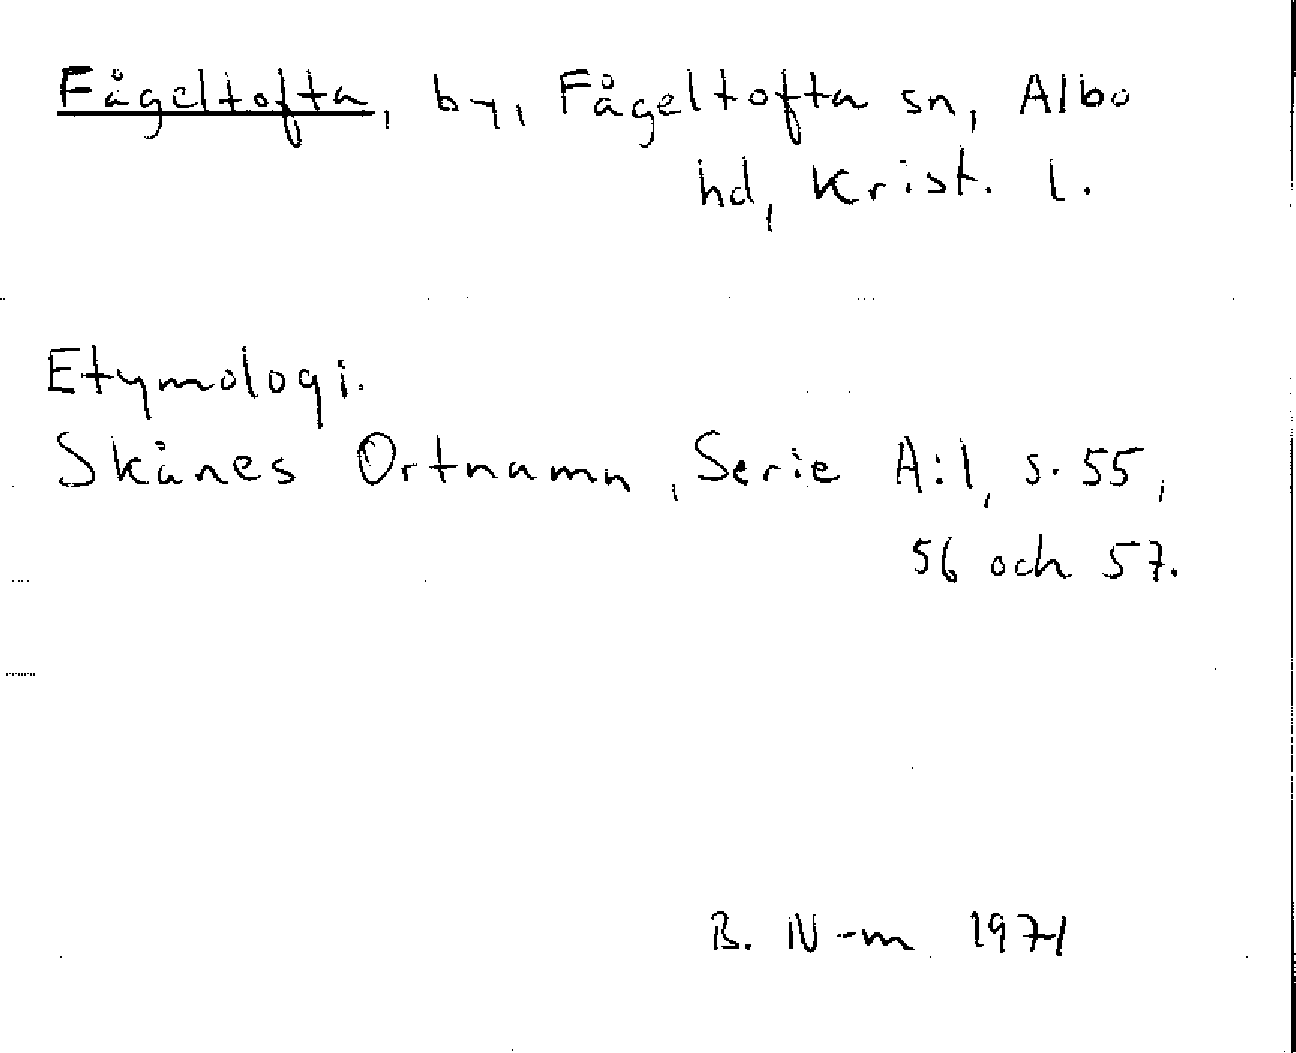 Fågeltofta, by, Fågeltofta sn, Albo
hd, Krist. l.
Etymologi.
Skånes Ortnamn, Serie A:1, s. 55,
56 och 57.
B. N-m 1971